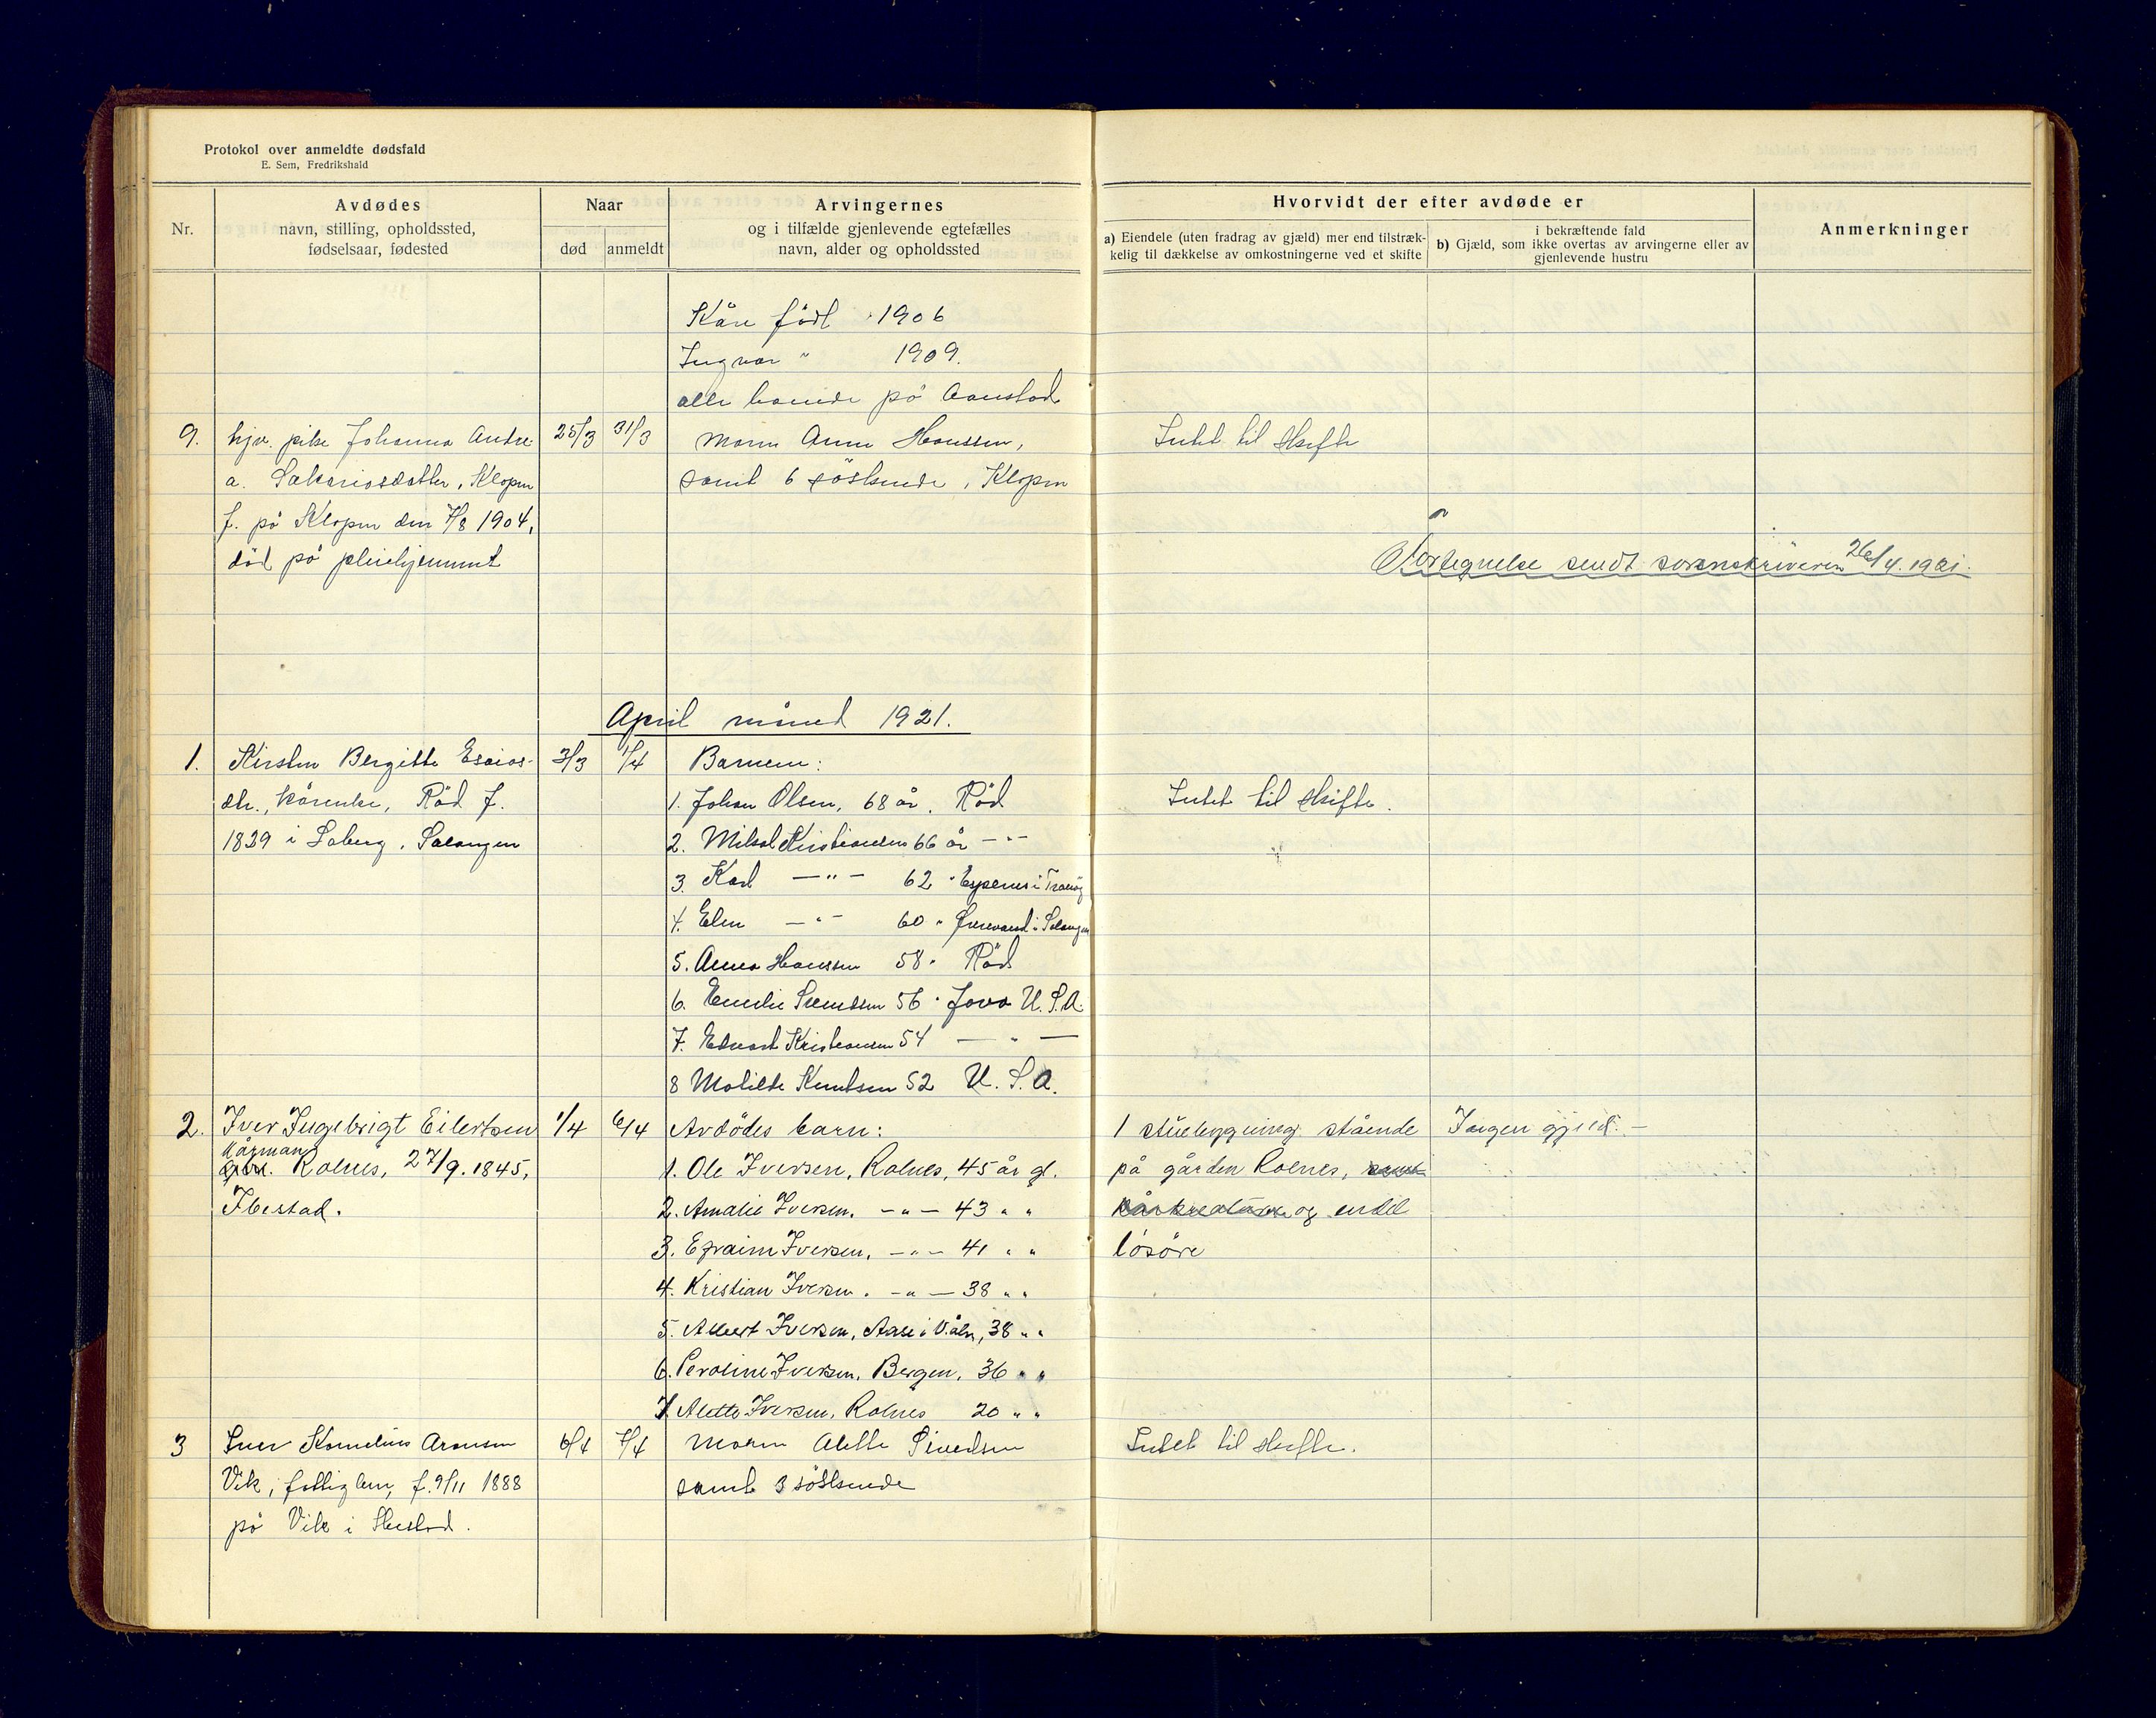 Protokol over anmeldte dødsfald
E. Sem, Fredrikshald
Nr.
Avdødes
navn, stilling, opholdssted,
fødselsaar, fødested
Naar
død
anmeldt
Arvingernes
og i tilfælde gjenlevende egtefælles
navn, alder og opholdssted
Hvorvidt der efter avdøde er
a) Eiendele (uten fradrag av gjæld) mer end tilstræk-
kelig til dækkelse av omkostningerne ved et skifte
i bekræftende fald
b) Gjæld, som ikke overtas av arvingerne eller av
gjenlevende hustru
Anmerkninger
Kåre född 1906
Ingvar " 1909.
alle boende på Aanstad
9. hjv. pike Johanna Andre
a. Sakariasdatter, Klopen
f. på Klopen den 7/8 1904,
död på pleiehjemmet
25/3 31/3
Moren Anne Hanssen,
samt 6 söskende, Klopen
Intet til skifte
Fortegnelse sendt sorenskriveren 26/4. 1921.
April måned 1921.
1. Kirsten Bergitte Esaias-
dtr., kårenke, Röd f.
1839 i Saberg, Salangen
3/3 1/4
Barnene:
1. Johan Olsen, 68 år, Röd
2. Mikal Kristiansen 66 år — " —
3. Karl — " — 62 " Espenes i Tranöy
4. Elen — " — 60 " i Salangen
5. Anna Hanssen 58 " Röd
6. Emilie 56 " Jova U.S.A.
7. Edvart Kristiansen 54 — " —
8 Matilde Knutsen 52 U.S.A.
Intet til skifte.
2. Iver Ingebrigt Eilertsen
Kårman
Rolnes, 27/9. 1845,
Ibestad.
1/4 6/4
Avdödes barn:
1. Ole Iversen, Rolnes, 45 år gl.
2. Amalie Iversen, — " — 43 " "
3. Efraim Iversen, — " — 41 " "
4. Kristian Iversen, — " — 38 " "
5. Albert Iversen, Aase i 38 " "
6. Peroline Iversen, Bergen, 36 " "
7. Alette Iversen, Rolnes 20 " "
1 stuebygning stående
på gården Rolnes, samt
kårkreature og endel
lösöre
Ingen gjæld. —
3 Iver Kornelius Aronsen
Vik, fattiglem, f. 9/11 1888
på Vik i Ibestad.
6/4 7/4
Moren Alette Sivertsen
samt 3 söskende
Intet til skifte.